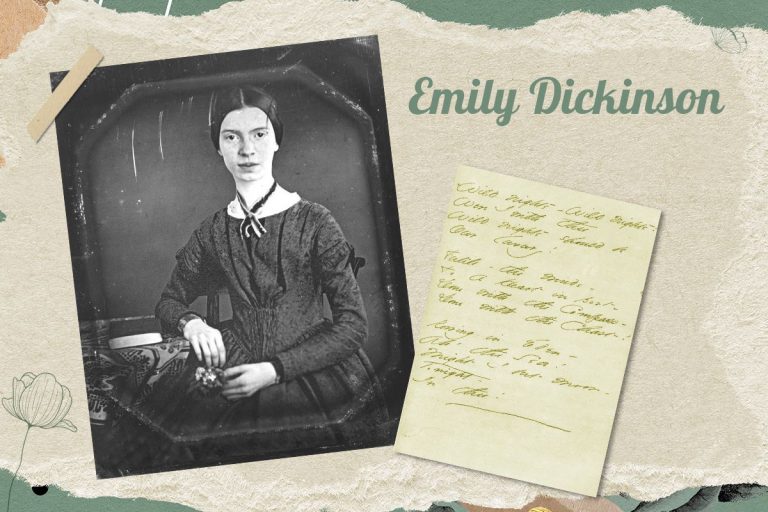 Emily Dickinson
Wild nights - Wild nights!
Were I with thee
Wild nights should be
Our luxury!
Futile - the winds -
To a Heart in port -
Done with the Compass -
Done with the Chart!
Rowing in Eden -
Ah - the Sea!
Might I but moor -
Tonight -
In thee!